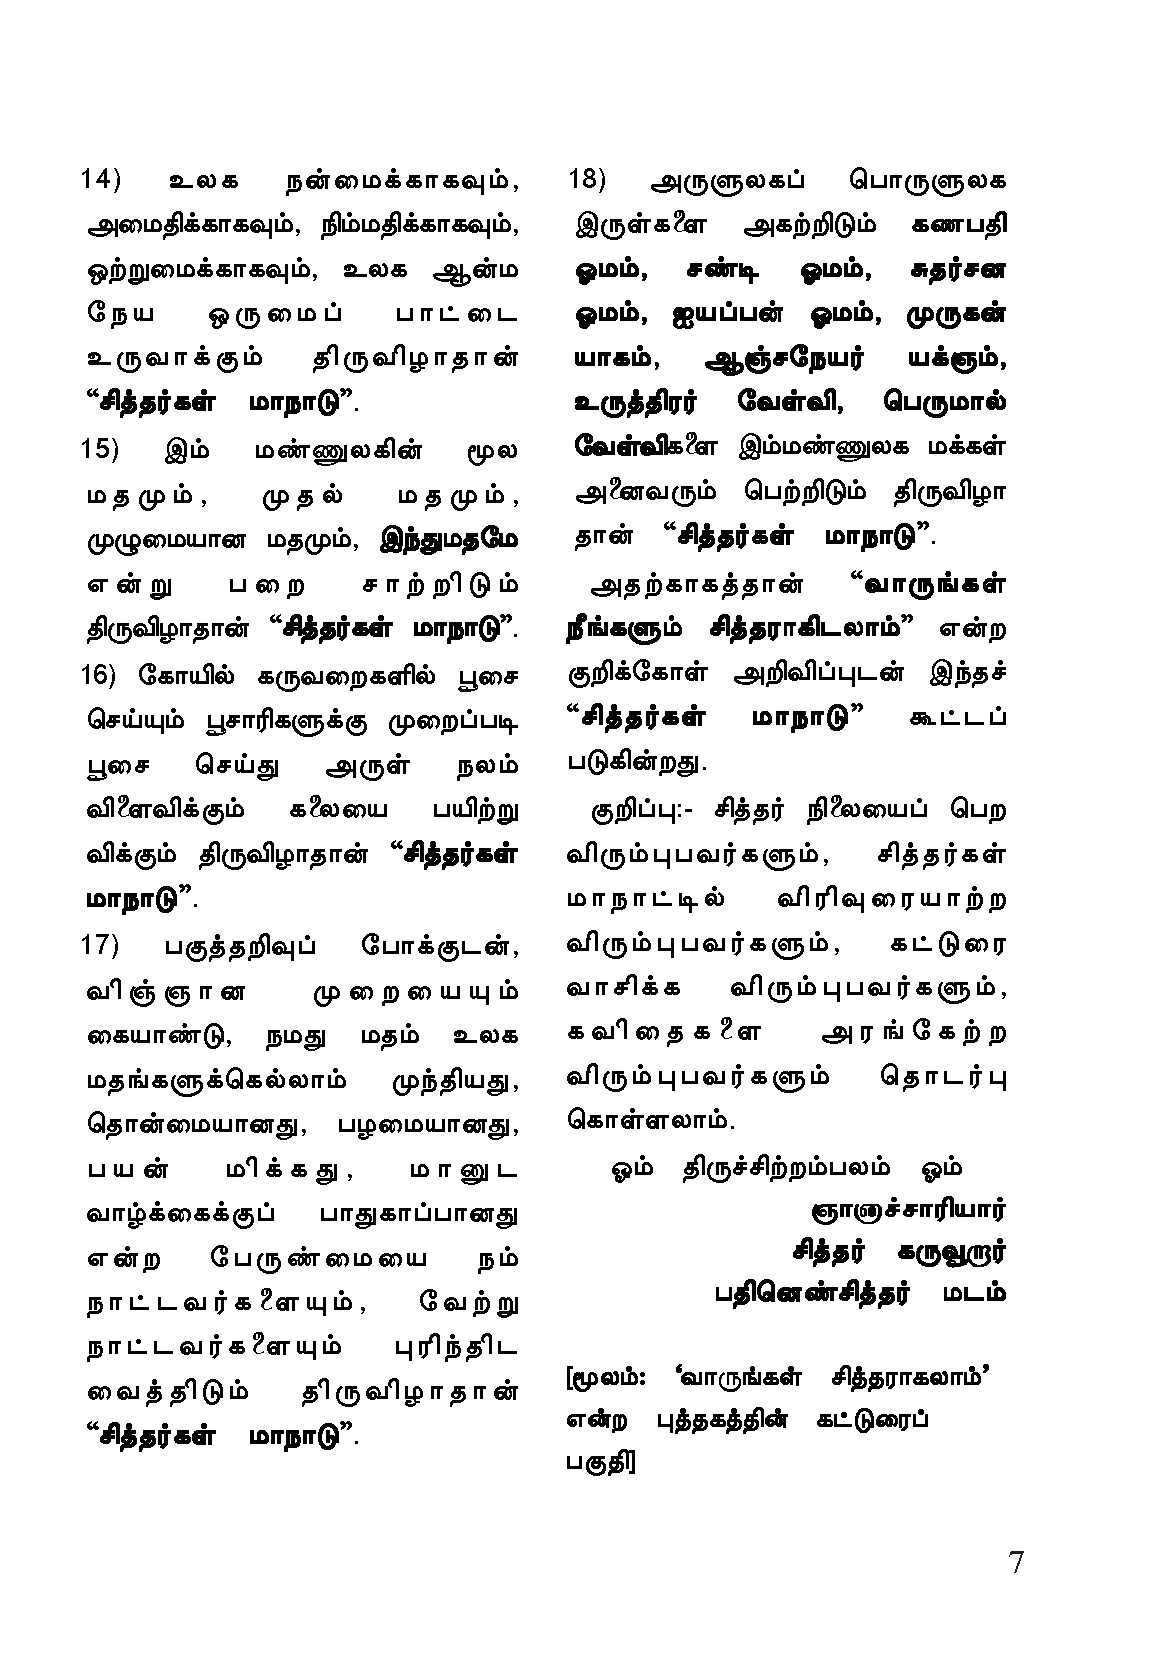 14) உலக நன்மைக்காகவும்,
அமைதிக்காகவும், நிம்மதிக்காகவும்,
ஒற்றுமைக்காகவும், உலக ஆன்ம
நேய ஒருமைப் பாட்டை
உருவாக்கும் திருவிழாதான்
“சித்தர்கள் மாநாடு”.
15) இம் மண்ணுலகின் மூல
மதமும், முதல் மதமும்,
முழுமையான மதமும், இந்துமதமே
என்று பறை சாற்றிடும்
திருவிழாதான் “சித்தர்கள் மாநாடு”.
16) கோயில் கருவறைகளில் பூசை
செய்யும் பூசாரிகளுக்கு முறைப்படி
பூசை செய்து அருள் நலம்
விளைவிக்கும் கலையை பயிற்று
விக்கும் திருவிழாதான் “சித்தர்கள்
மாநாடு”.
17) பகுத்தறிவுப் போக்குடன்,
விஞ்ஞான முறையையும்
கையாண்டு, நமது மதம் உலக
மதங்களுக்கெல்லாம் முந்தியது,
தொன்மையானது, பழமையானது,
பயன் மிக்கது, மானுட
வாழ்க்கைக்குப் பாதுகாப்பானது
என்ற பேருண்மையை நம்
நாட்டவர்களையும், வேற்று
நாட்டவர்களையும் புரிந்திட
வைத்திடும் திருவிழாதான்
“சித்தர்கள் மாநாடு”.
18) அருளுலகப் பொருளுலக
இருள்களை அகற்றிடும் கணபதி
ஓமம், சண்டி ஓமம், சுதர்சன
ஓமம், ஐயப்பன் ஓமம், முருகன்
யாகம், ஆஞ்சநேயர் யக்ஞம்,
உருத்திரர் வேள்வி, பெருமால்
வேள்விகளை இம்மண்ணுலக மக்கள்
அனைவரும் பெற்றிடும் திருவிழா
தான் “சித்தர்கள் மாநாடு”.
அதற்காகத்தான் “வாருங்கள்
நீங்களும் சித்தராகிடலாம்” என்ற
குறிக்கோள் அறிவிப்புடன் இந்தச்
“சித்தர்கள் மாநாடு” கூட்டப்
படுகின்றது.
குறிப்பு:- சித்தர் நிலையைப் பெற
விரும்புபவர்களும், சித்தர்கள்
மாநாட்டில் விரிவுரையாற்ற
விரும்புபவர்களும், கட்டுரை
வாசிக்க விரும்புபவர்களும்,
கவிதைகளை அரங்கேற்ற
விரும்புபவர்களும் தொடர்பு
கொள்ளலாம்.
ஓம் திருச்சிற்றம்பலம் ஓம்
ஞானாச்சாரியார்
சித்தர் கருவூறார்
பதினெண்சித்தர் மடம்
[மூலம்: ‘வாருங்கள் சித்தராகலாம்’
என்ற புத்தகத்தின் கட்டுரைப்
பகுதி]
7